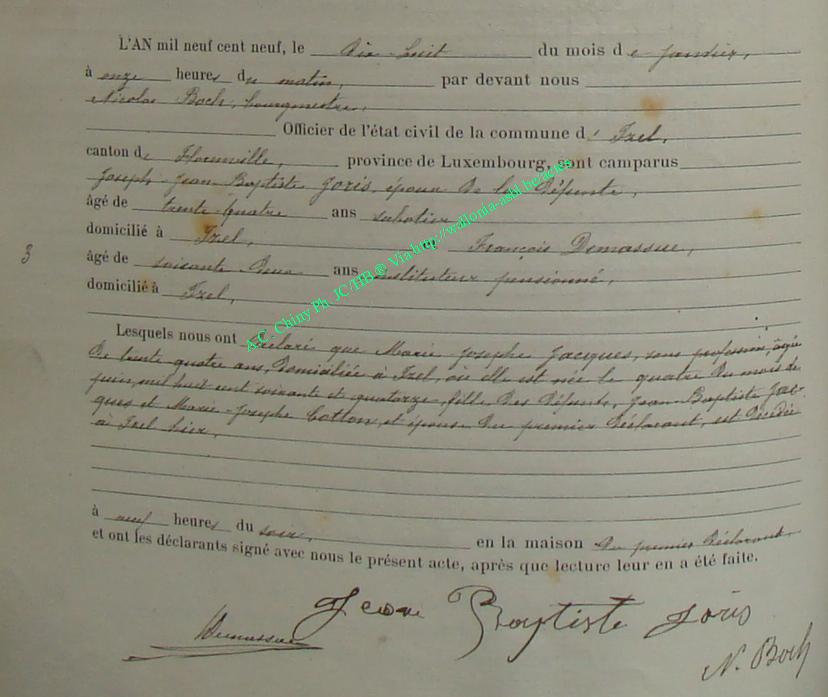 L'AN mil neuf cent neuf, le dix-huit du mois de janvier,
à onze heures du matin, par devant nous
Nicolas Boch, bourgmestre,
Officier de l'état civil de la commune d'Izel,
canton de Florenville, province de Luxembourg, sont comparus
Joseph Jean Baptiste Joris, époux de la défunte,
âgé de trente-quatre ans sabotier
domicilié à Izel, François Demassue,
3
âgé de soixante deux ans instituteur pensionné,
domicilié à Izel,
A.C. Chiny Ph JC/HB ® Via http://wallonia-asbl.be/acte
Lesquels nous ont déclaré que Marie Josephe Jacques, sans profession, âgée
de trente quatre ans, domiciliée à Izel, où elle est née le quatre du mois de
juin, mil huit cent soixante et quatorze, fille des défunts, Jean-Baptiste Jac-
ques et Marie-Josephe Cotton, et épouse du premier déclarant, est décédée
à Izel hier,
à neuf heures du soir, en la maison du premier déclarant.
et ont les déclarants signé avec nous le présent acte, après que lecture leur en a été faite.
Jean Baptiste Joris
Demassue
N. Boch